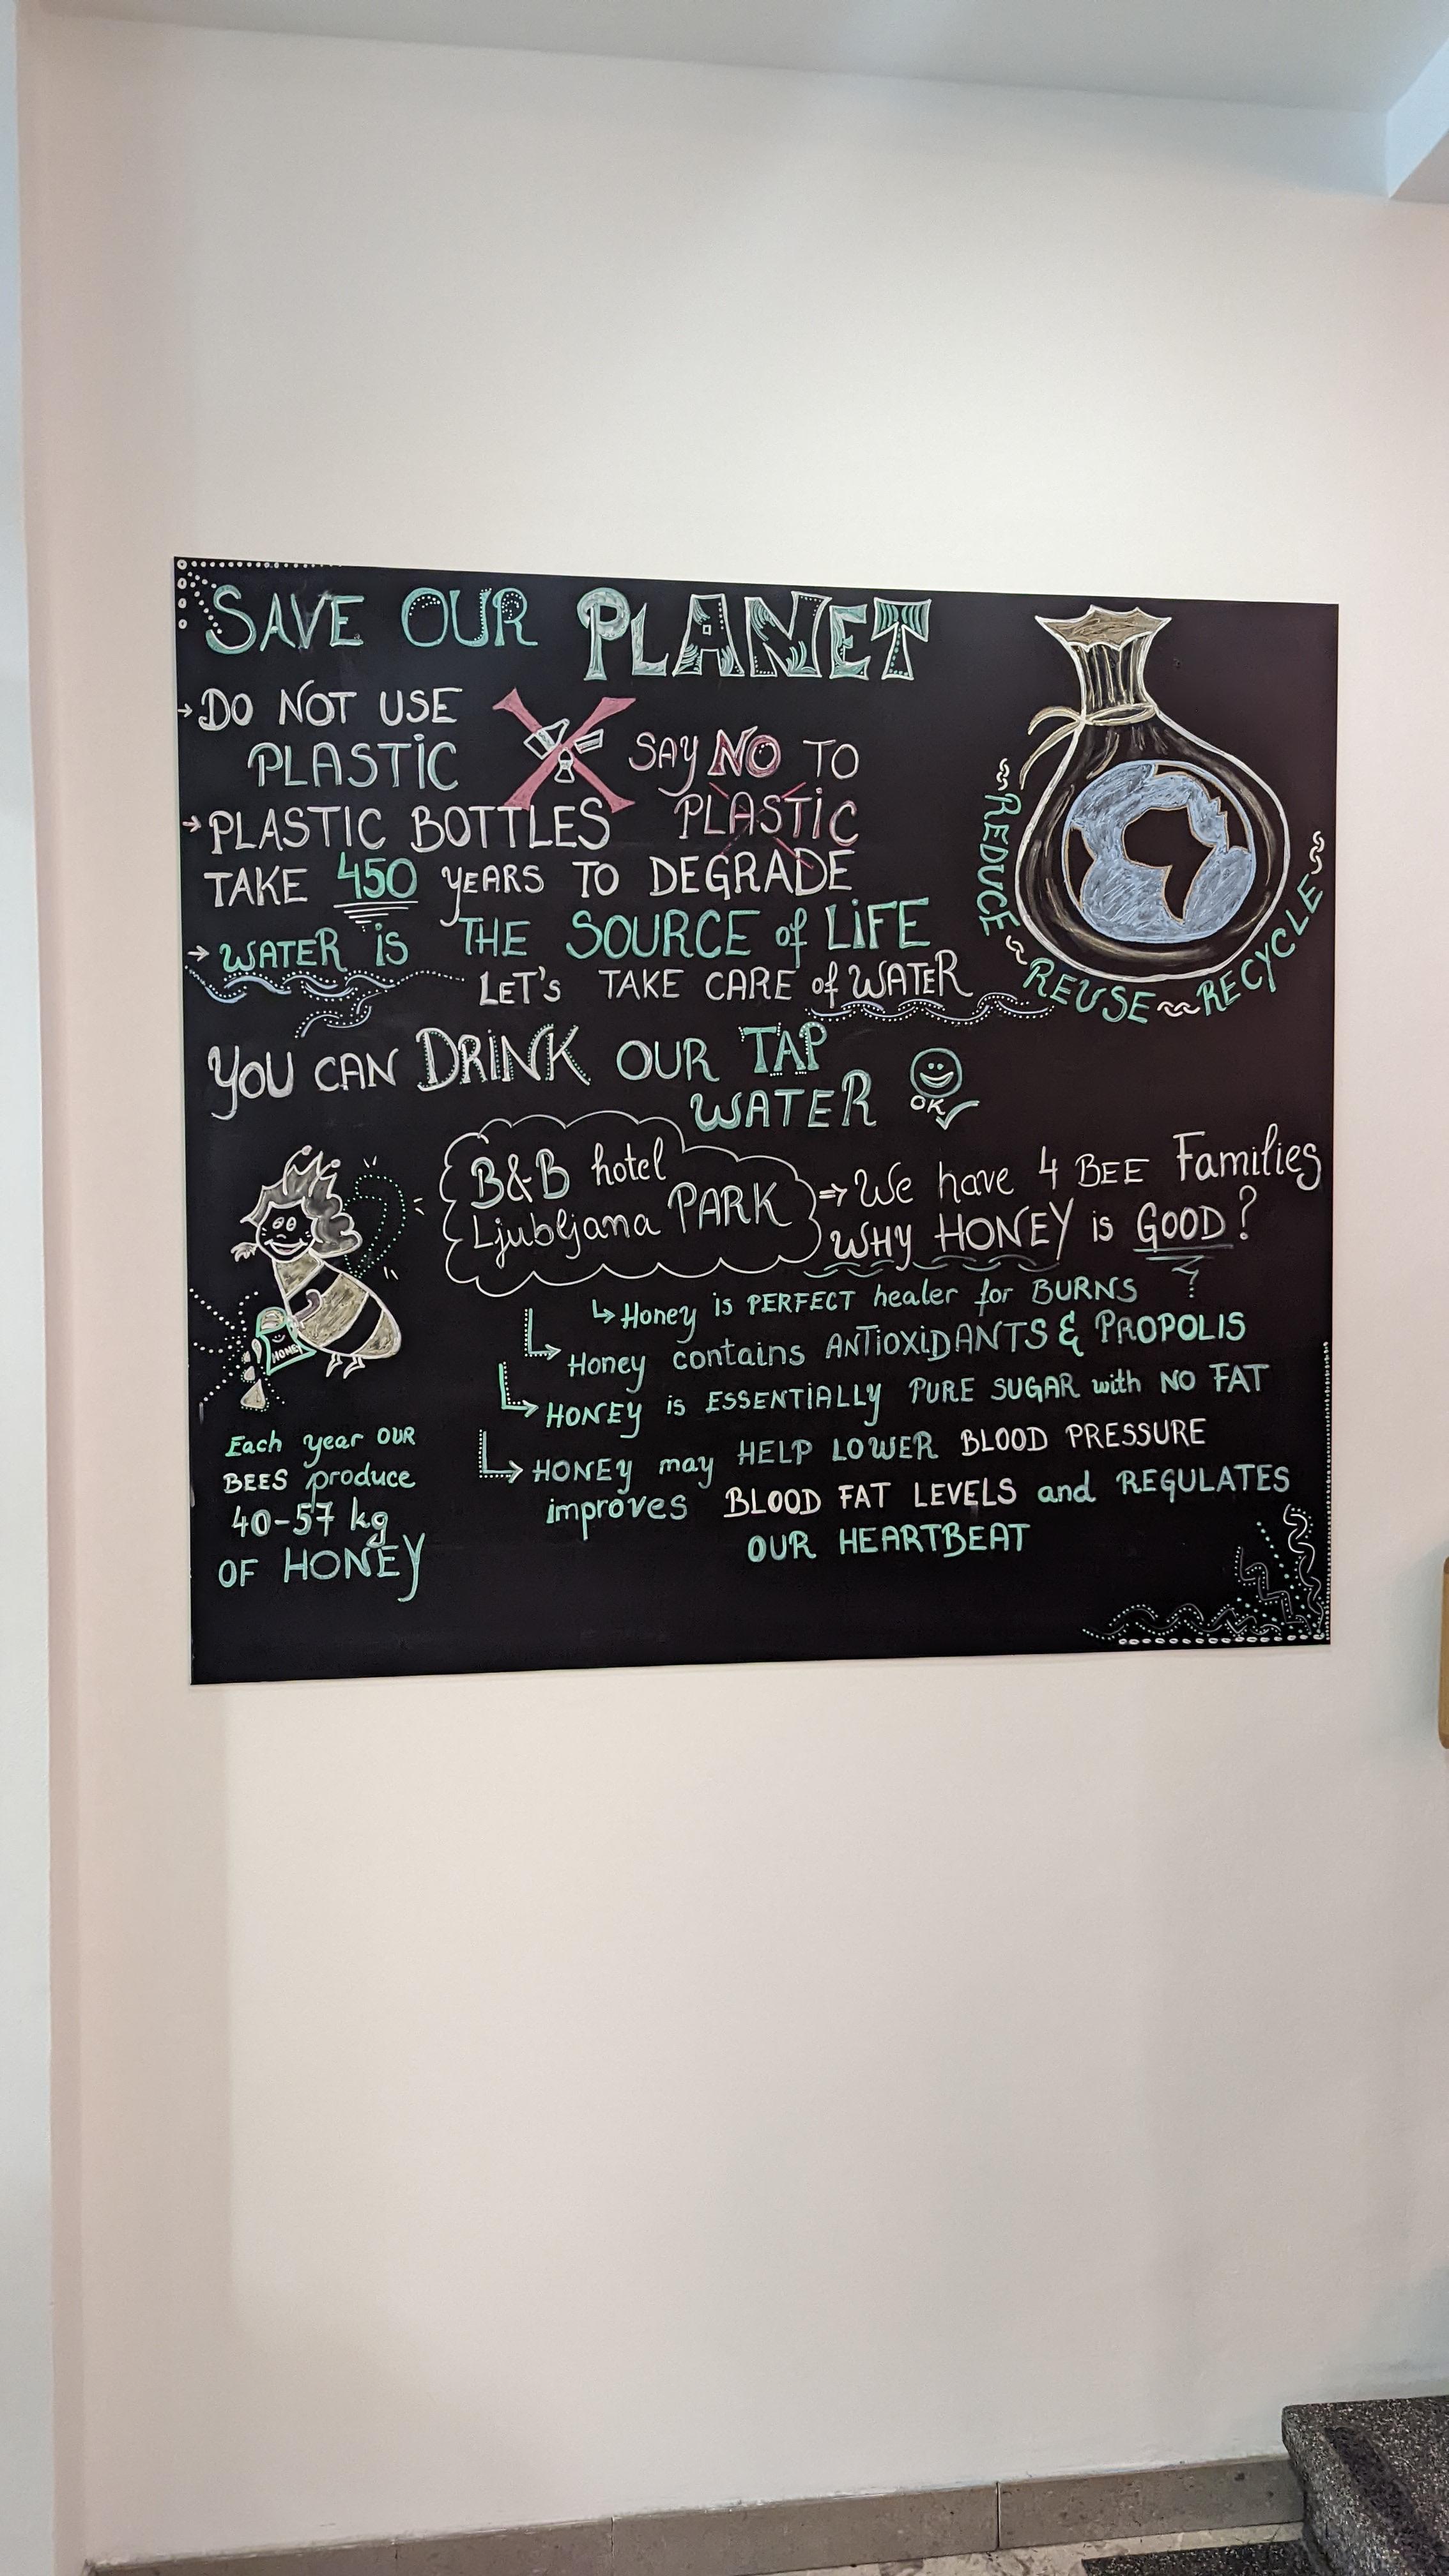 SAVE OUR PLANET
→ DO NOT USE
PLASTIC
SAY NO TO
PLASTIC
→ PLASTIC BOTTLES
TAKE 450 YEARS TO DEGRADE
→ WATER IS THE SOURCE of LIFE
LET'S TAKE CARE of WATER
REDUCE ~ REUSE ~ RECYCLE
YOU CAN DRINK OUR TAP
WATER
OK
B&B hotel
Ljubljana PARK
⇒ We have 4 BEE Families
WHY HONEY is GOOD?
↳ Honey is PERFECT healer for BURNS
↳ Honey contains ANTIOXIDANTS & PROPOLIS
↳ HONEY is ESSENTIALLY PURE SUGAR with NO FAT
↳ HONEY may HELP LOWER BLOOD PRESSURE
improves BLOOD FAT LEVELS and REGULATES
OUR HEARTBEAT
HONEY
Each year OUR
BEES produce
40-57 kg
OF HONEY